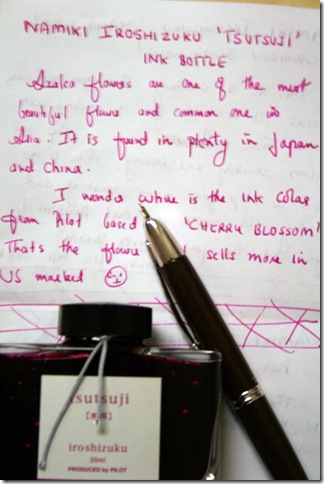 NAMIKI IROSHIZUKU 'TSUTSUJI'
INK BOTTLE
Azalea flowers are one of the most
beautiful flowers and common one in
Asia. It is found in plenty in Japan
and China.
I wonder where is the ink color
from Pilot based 'CHERRY BLOSSOM'
Thats the flower sells more in
US market
tsutsuji
iroshizuku
50ml
PRODUCED by PILOT